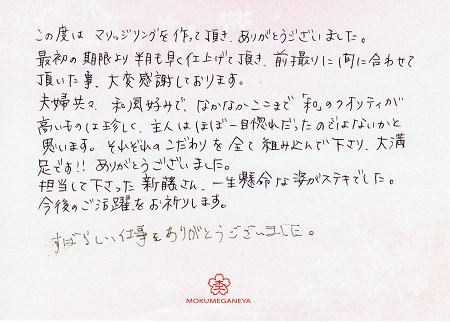 この度は マリッジリングを作って頂き、ありがとうございました。
最初の期限より半月も早く仕上げて頂き、前撮りに間に合わせて
頂いた事、大変感謝しております。
夫婦共々、和風好みで、なかなかここまで「和」のクオリティが
高いものは珍しく、主人はほぼ一目惚れだったのではないかと
思います。それぞれのこだわりを全て組み込んで下さり、大満
足です!! ありがとうございました。
担当して下さった 新藤さん、一生懸命な姿がステキでした。
今後のご活躍をお祈りします。
すばらしい仕事をありがとうございました。
MOKUMEGANEYA